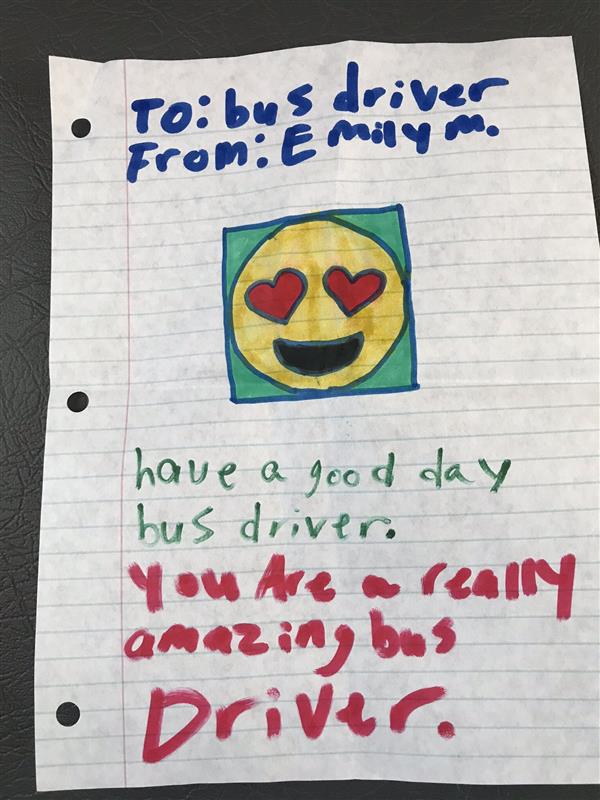 To: bus driver
From: Emily m.
have a good day
bus driver.
you Are a really
amazing bus
Driver.